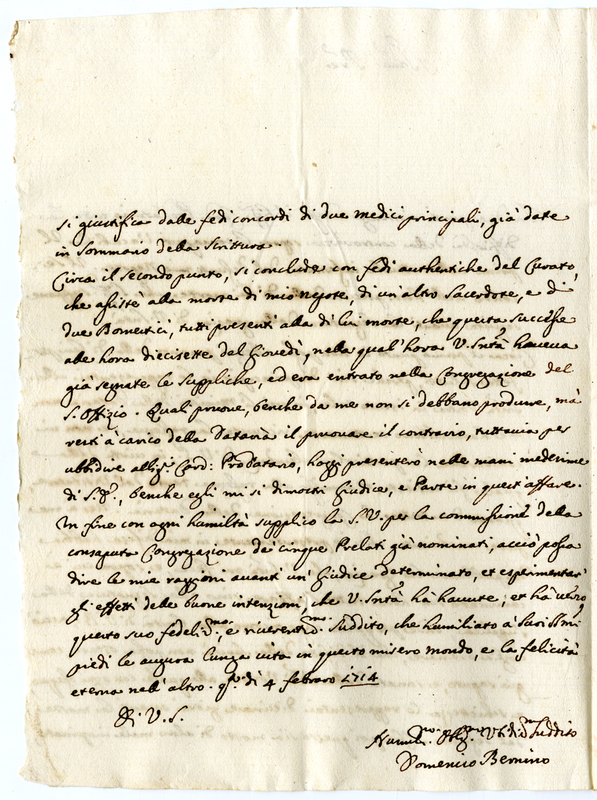 si giustifica dalle fedi concordi di due medici principali, già date
in sommario della scrittura.
Circa il secondo punto, si conclude con fedi authentiche del Curato,
che assisté alla morte di mio nepote, di un'altro Sacerdote, e di
due Domestici, tutti presenti alla di lui morte, che questa successe
alle hora diecisette del Giovedì, nella qual'hora V. Sntà haveva
già segnate le suppliche, ed era entrato nella Congregazione del
S. Offizio. Quali pruove, benche da me non si debbano produrre, mà
resti à carico della Dataria il pruovare il contrario, tuttavia per
ubbidire all' Card: ProDatario, hoggi presenterò nelle mani medesime
di S. E., benche egli mi si dimostri Giudice, e Parte in quest'affare.
In fine con ogni humiltà supplico la S. V. per la commissione della
consaputa Congregazione de' cinque Prelati già nominati, acciò possa
dire le mie raggioni avanti un' Giudice determinato, et esperimentar'
gl' effetti delle buone intenzioni, che V. Sntà hà havute, et hà verso
questo suo fedeliss.mo, e riverentiss.mo suddito, che humiliato a' suoi SSmi
piedi le augura lunga vita in questo misero mondo, e la felicità
eterna nell'altro. q.to dì 4 febraro 1714
Di V. S.
Humil.mo Oblg.mo Ubid.mo Suddito
Domenico Bernino